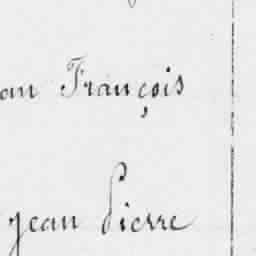 an François
jean Pierre